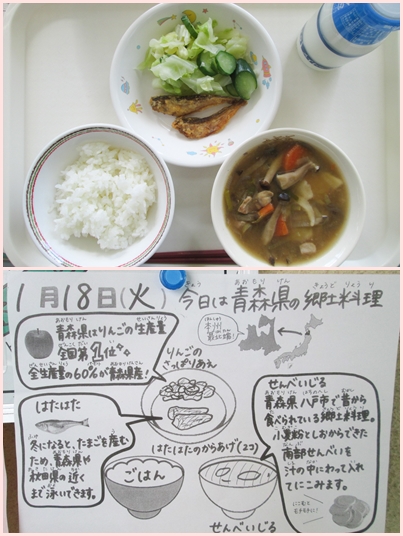 1月18日(火) 今日は青森県の郷土料理
きょう あおもり けん きょうど りょうり
青森県はりんごの生産量
全国第1位
全生産量の60%が青森県産!
本州
最北端!
りんごの
さっぱりあえ
はたはた
冬になると、たまごを産む
ため、青森県や
秋田県の近く
まで泳いできます。
はたはたのからあげ(2コ)
ごはん
せんべいじる
せんべいじる
青森県 八戸市で昔から
食べられている郷土料理。
小麦粉としおからできた
南部せんべいを
汁の中にわって入れ
てにこみます。